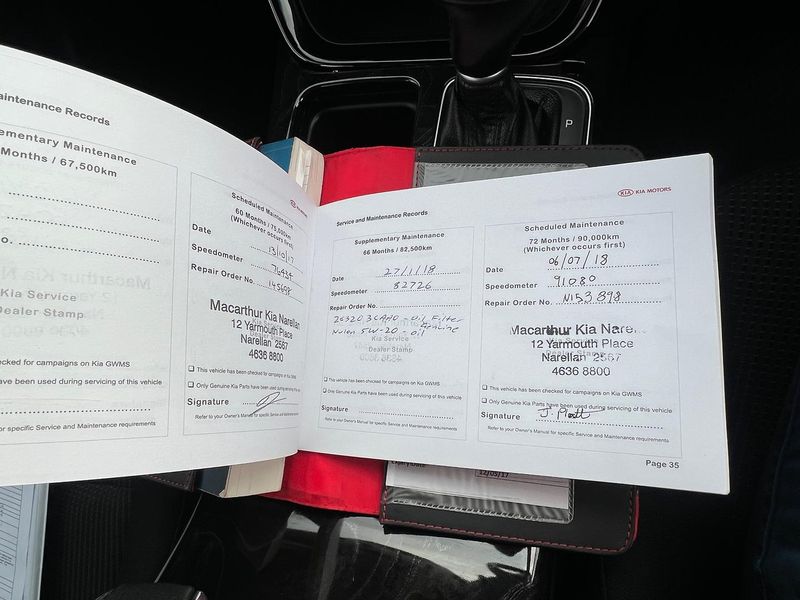 aintenance Records
ementary Maintenance
Months / 67,500km
o.
Kia Service
Dealer Stamp
ecked for campaigns on Kia GWMS
ave been used during servicing of this vehicle
or specific Service and Maintenance requirements
Scheduled Maintenance
60 Months / 75,000km
(Whichever occurs first)
Date 13/10/17
Speedometer
Repair Order No.
Macarthur Kia Narellan
12 Yarmouth Place
Narellan 2567
4636 8800
This vehicle has been checked for campaigns on Kia
Only Genuine Kia Parts have been used during servicing
Signature
Refer to your Owner's Manual for specific Service and
Service and Maintenance Records
Supplementary Maintenance
66 Months / 82,500km
Date 27/1/18
Speedometer 82726
Repair Order No.
26320 3CAA0 - Oil Filter
Nulon 5W-20 - Oil
Kia Service
Dealer Stamp
This vehicle has been checked for campaigns on Kia GWMS
Only Genuine Kia Parts have been used during servicing of this vehicle
Signature
Refer to your Owner's Manual for specific Service and Maintenance requirements
KIA KIA MOTORS
Scheduled Maintenance
72 Months / 90,000km
(Whichever occurs first)
Date 06/07/18
Speedometer 91080
Repair Order No. N153898
Macarthur Kia Nare
12 Yarmouth Place
Narellan 2567
4636 8800
This vehicle has been checked for campaigns on Kia GWMS
Only Genuine Kia Parts have been used during servicing of this vehicle
Signature J. Pratt
Refer to your Owner's Manual for specific Service and Maintenance requirements
Page 35
Expiry Date
12/05/17
P